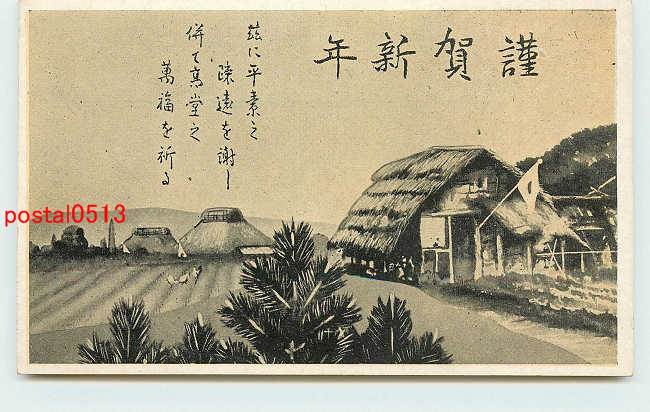 謹賀新年
茲に平素之
疎遠を謝し
併て高堂之
萬福を祈る
postal0513